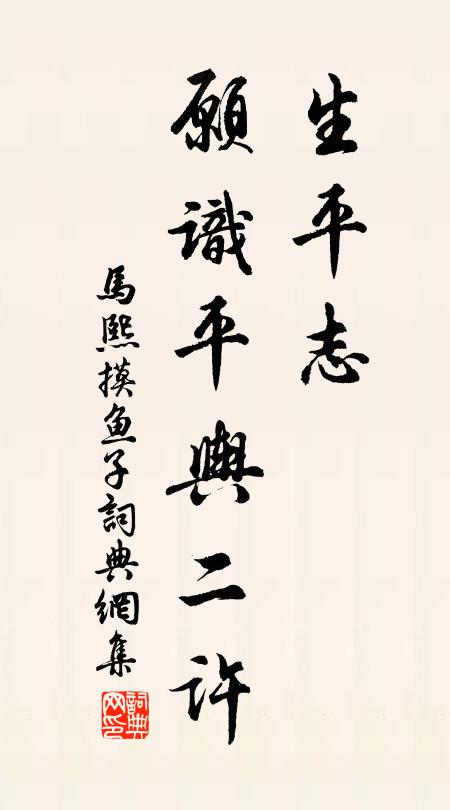 生平志
願識平輿二許
馬熙摸鱼子詞典網集
詞典网印